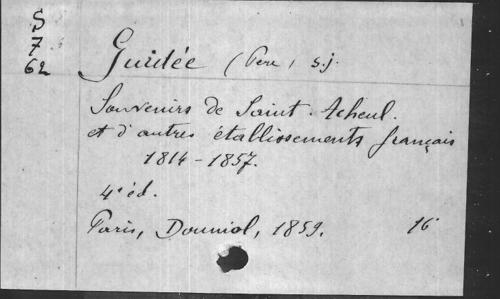 S
7
62
Guidée (Père, s.j.
Souvenirs de Saint-Acheul.
et d'autres établissements français
1814-1857.
4e éd.
Paris, Douniol, 1859. 16°